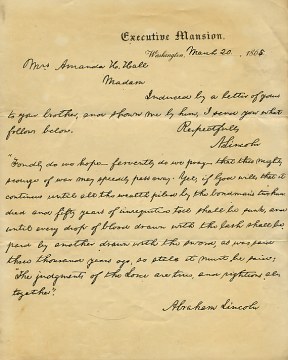 Executive Mansion.
Washington, March 20, 1865
Mrs. Amanda H. Hall
Madam
Induced by a letter of yours
to your brother, and shown me by him, I send you what
follows below.
Respectfully
A Lincoln
"Fondly do we hope— fervently do we pray— that this mighty
scourge of war may speedily pass away. Yet, if God wills that it
continue until all the wealth piled by the bondman's two hun-
dred and fifty years of unrequited toil shall be sunk, and
until every drop of blood drawn with the lash shall be
paid by another drawn with the sword, as was said
three thousand years ago, so still it must be said,
"The judgments of the Lord are true, and righteous al-
together".
Abraham Lincoln